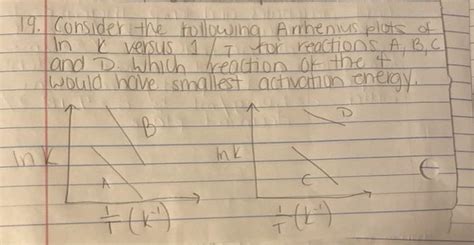 19. Consider the following Arrhenius plots of
ln K versus 1/T for reactions A, B, C
and D. Which reaction of the 4
would have smallest activation energy.
B
D
ln K
ln K
A
C
1/T (K⁻¹)
1/T (K⁻¹)